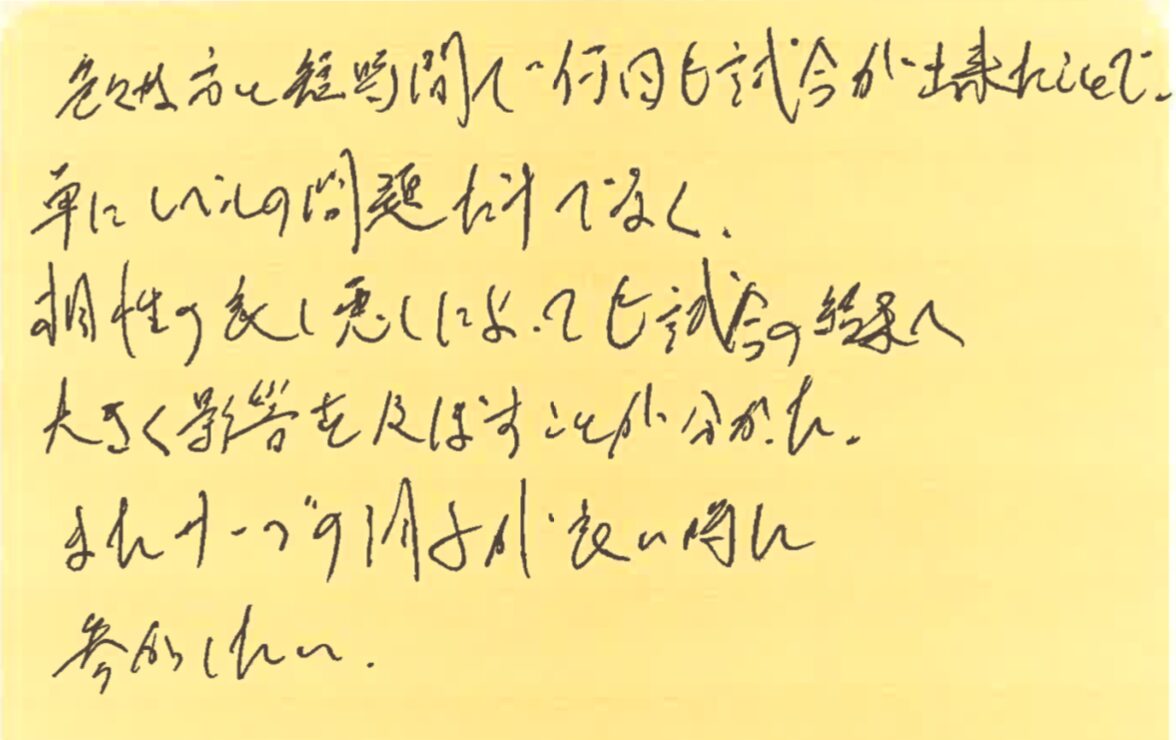 色々な方と短時間で何回も試合が出来たことで、
単にレベルの問題だけでなく、
相性の良し悪しによっても試合の結果へ
大きく影響を及ぼすことが分かった。
またサーブの調子が良い時に
参加したい。